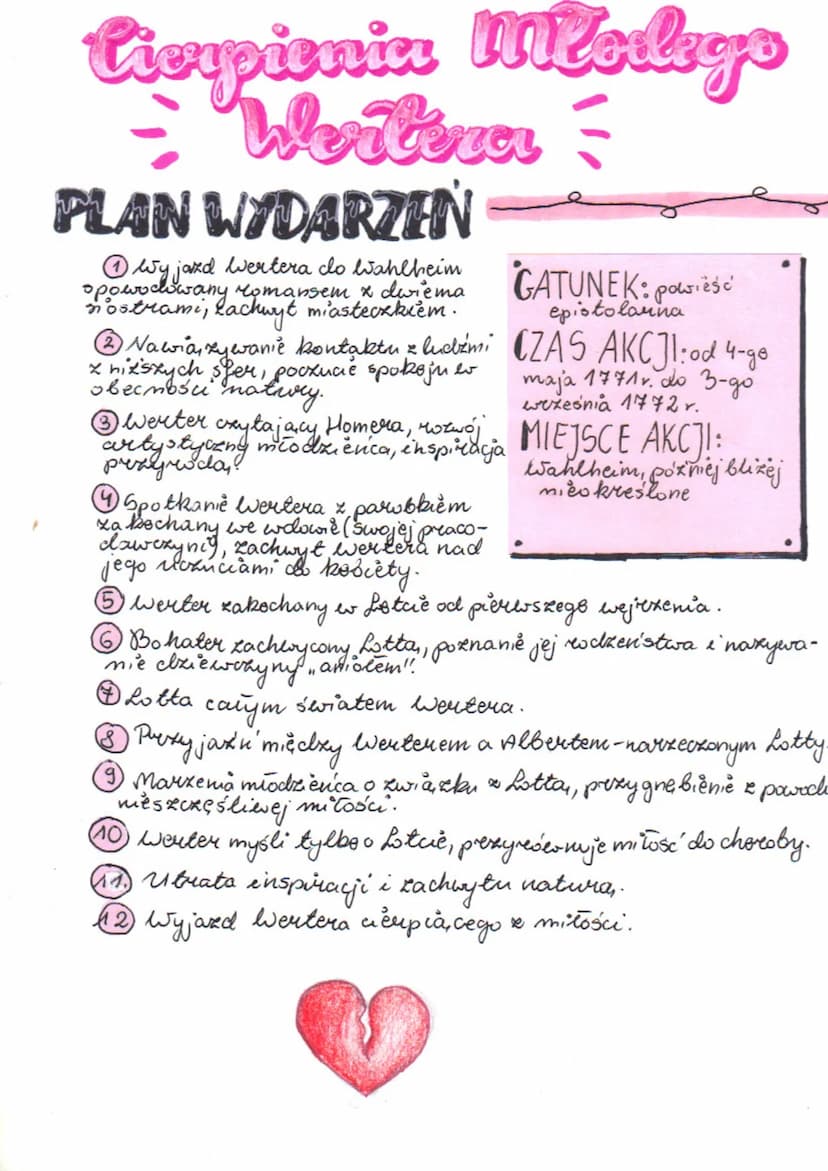 Cierpienia Młodego
Wertera
PLAN WYDARZEŃ
① Wyjazd Wertera do Wahlheim
spowodowany romansem z dwiema
siostrami, zachwyt miasteczkiem.
② Nawiązywanie kontaktu z ludźmi
z niższych sfer, poczucie spokoju w
obecności natury.
③ Werter czytający Homera, rozwój
artystyczny młodzieńca, inspiracja
przyrodą.
④ Spotkanie Wertera z parobkiem
zakochany we wdowie (swojej praco-
dawczyni), zachwyt Wertera nad
jego uczuciami do kobiety.
⑤ Werter zakochany w Lotcie od pierwszego wejrzenia.
⑥ Bohater zachwycony Lottą, poznanie jej rodzeństwa i nazywa-
nie dziewczyny „aniołem".
⑦ Lotta całym światem Wertera.
⑧ Przyjaźń między Werterem a Albertem-narzeczonym Lotty.
⑨ Marzenia młodzieńca o związku z Lottą, przygnębienie z powodu
nieszczęśliwej miłości.
⑩ Werter myśli tylko o Lotcie, przyrównuje miłość do choroby.
11. Utrata inspiracji i zachwytu naturą.
⑫ Wyjazd Wertera cierpiącego z miłości.
GATUNEK: powieść
epistolarna
CZAS AKCJI: od 4-go
maja 1771r. do 3-go
września 1772r.
MIEJSCE AKCJI:
Wahlheim, później bliżej
nieokreślone